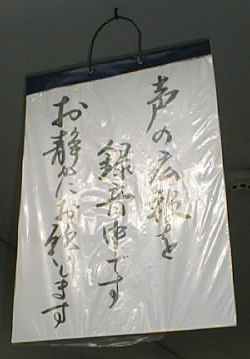 声の広報を
録音中です
お静かにお願いします